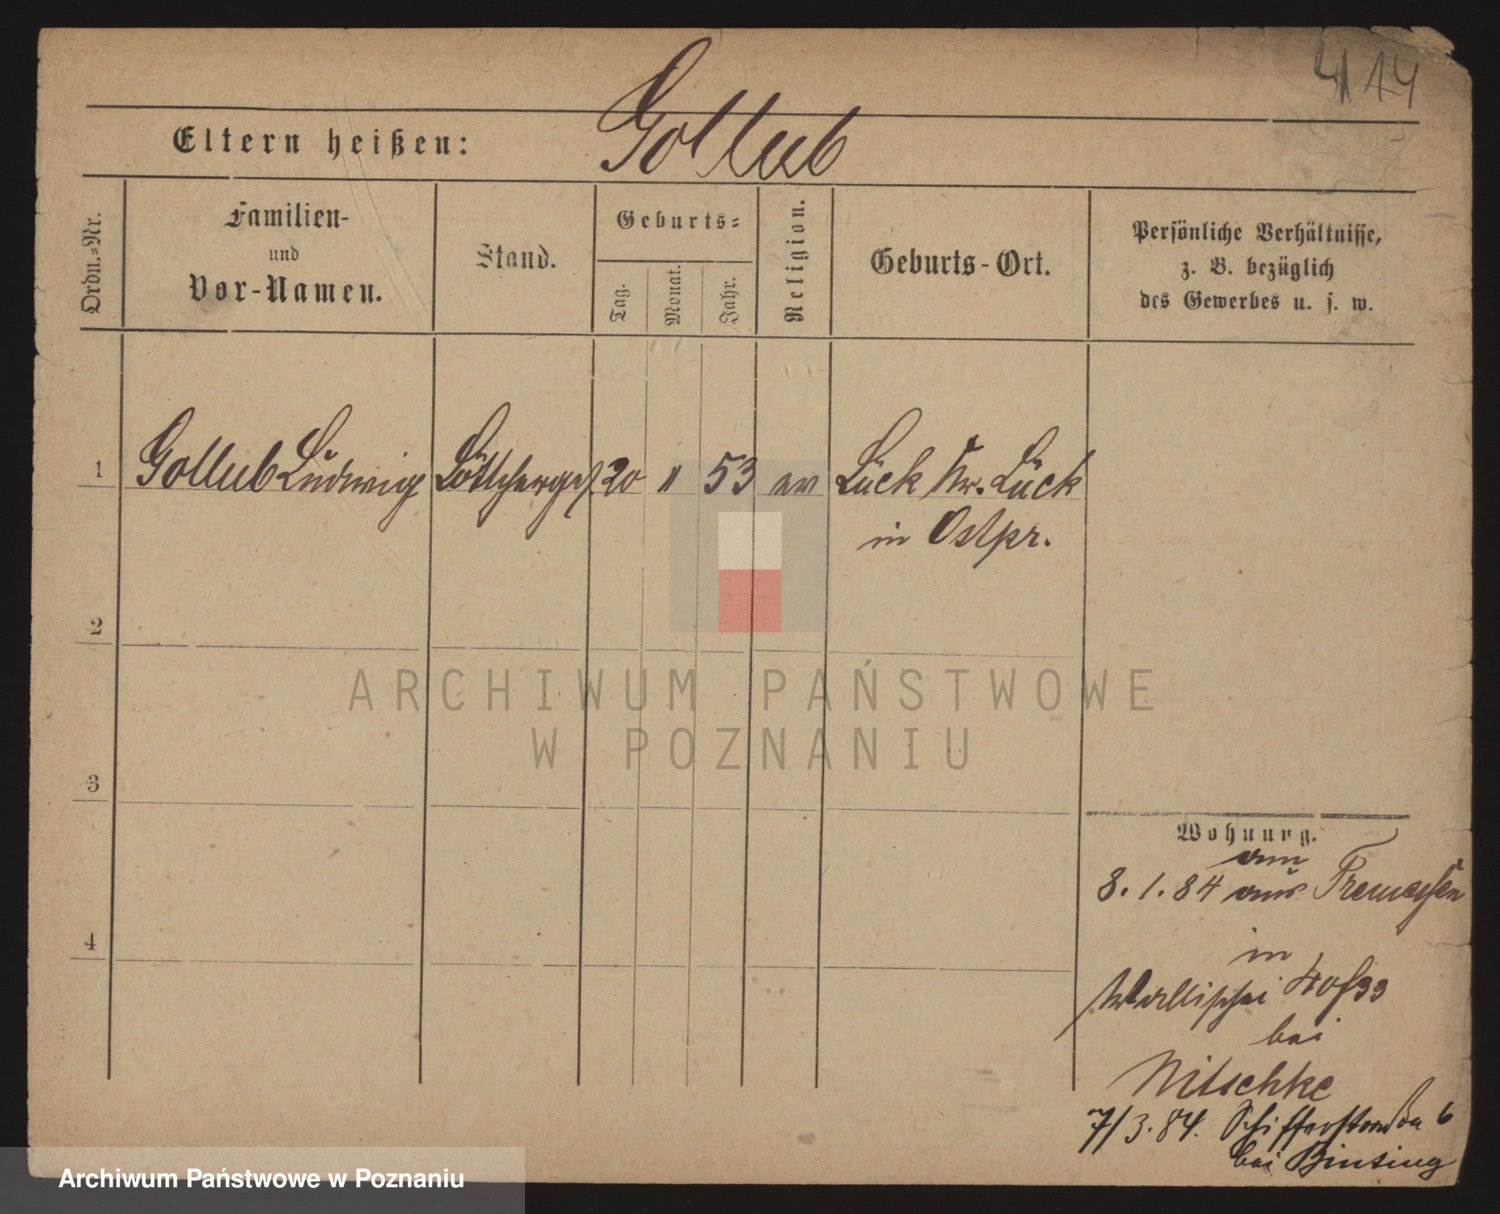 414
Eltern heißen: Gollub
Ordn.=Nr.
Familien-
und
Vor-Namen.
Stand.
Geburts=
Tag.
Monat.
Jahr.
Religion.
Geburts-Ort.
Persönliche Verhältnisse,
z. B. bezüglich
des Gewerbes u. s. w.
1 Gollub Ludwig Böttcherges. 20 53 ev Lück Kr. Lück
in Ostpr.
2
3
4
Wohnung.
am
8. 1. 84 aus Tremessen
in
Wallischei 40/33
bei
Nitschke
7/3. 84. Schifferstraße 6
bei Binsing
ARCHIWUM PAŃSTWOWE
W POZNANIU
Archiwum Państwowe w Poznaniu